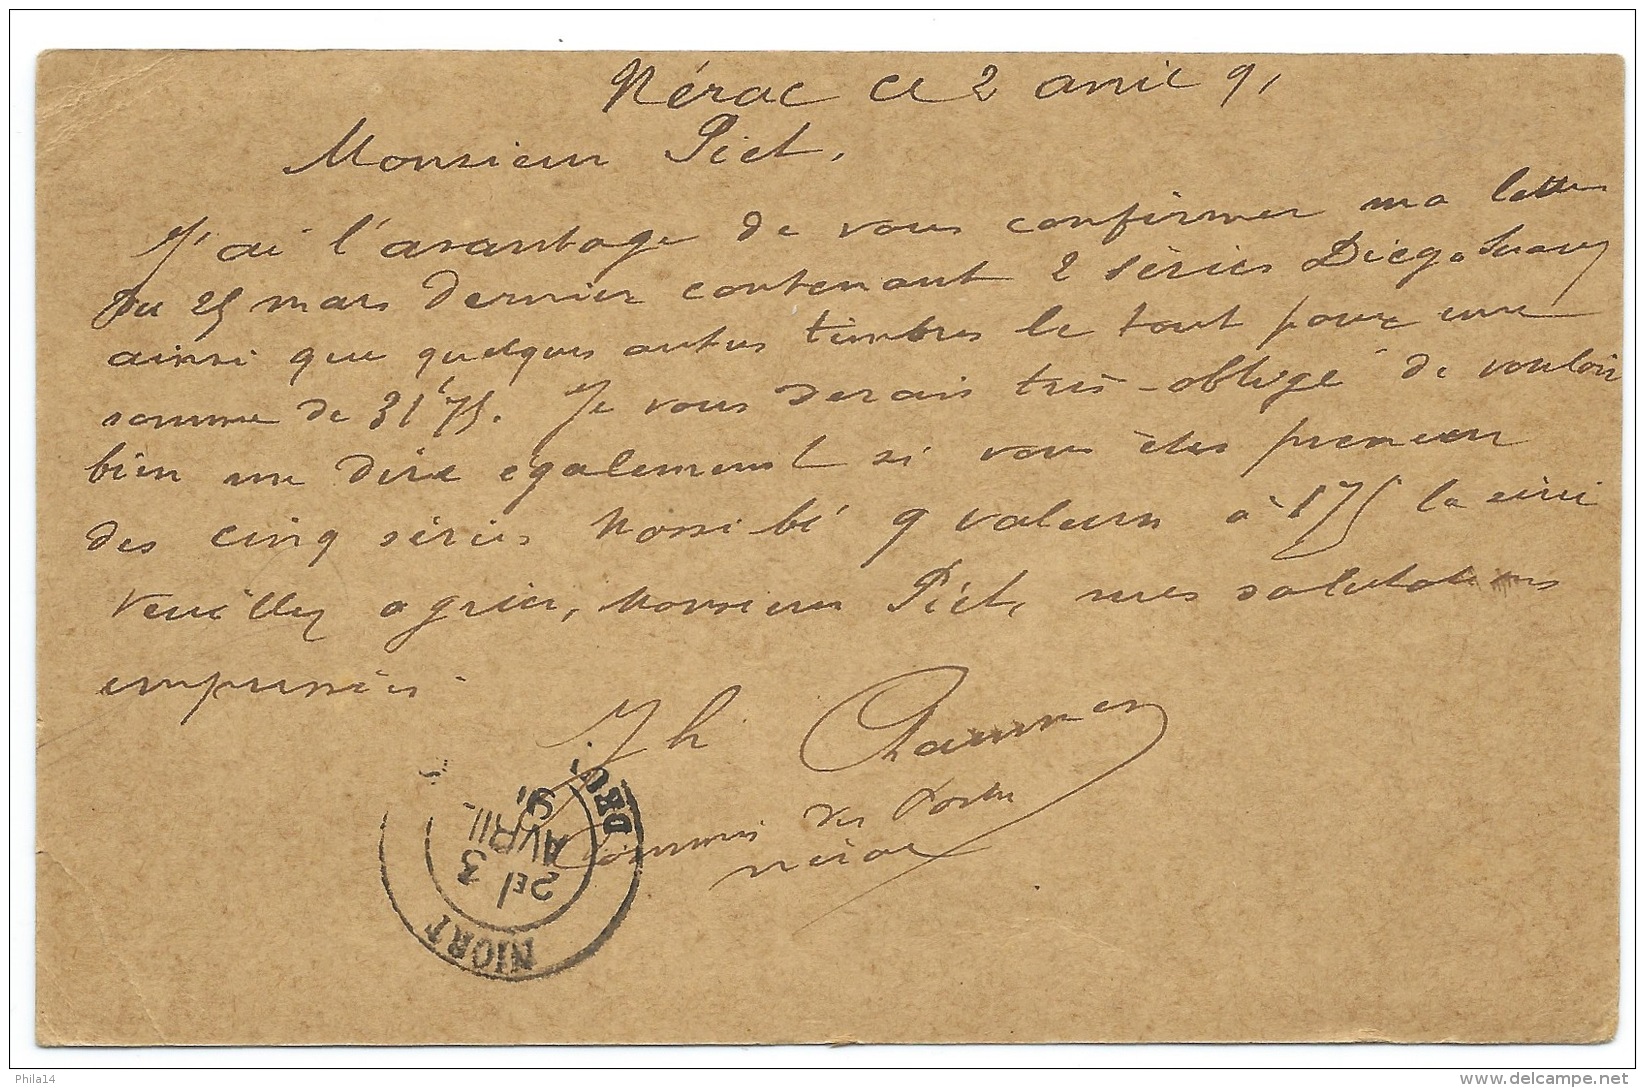 Nérac le 2 avril 91
Monsieur Piet,
J'ai l'avantage de vous confirmer ma lettre
du 25 mars dernier contenant 2 séries Diego Suarez
ainsi que quelques autres timbres le tout pour une
somme de 31f75. Je vous serais très-obligé de vouloir
bien me dire également si vous êtes preneur
des cinq séries Nossi bé 9 valeurs à 175 la série
Veuillez agréer, Monsieur Piet, mes salutations
empressées
Jh
Commis des Postes
Nérac
NIORT
2E/ 3
AVRIL
91
Phila14
delcampe.net